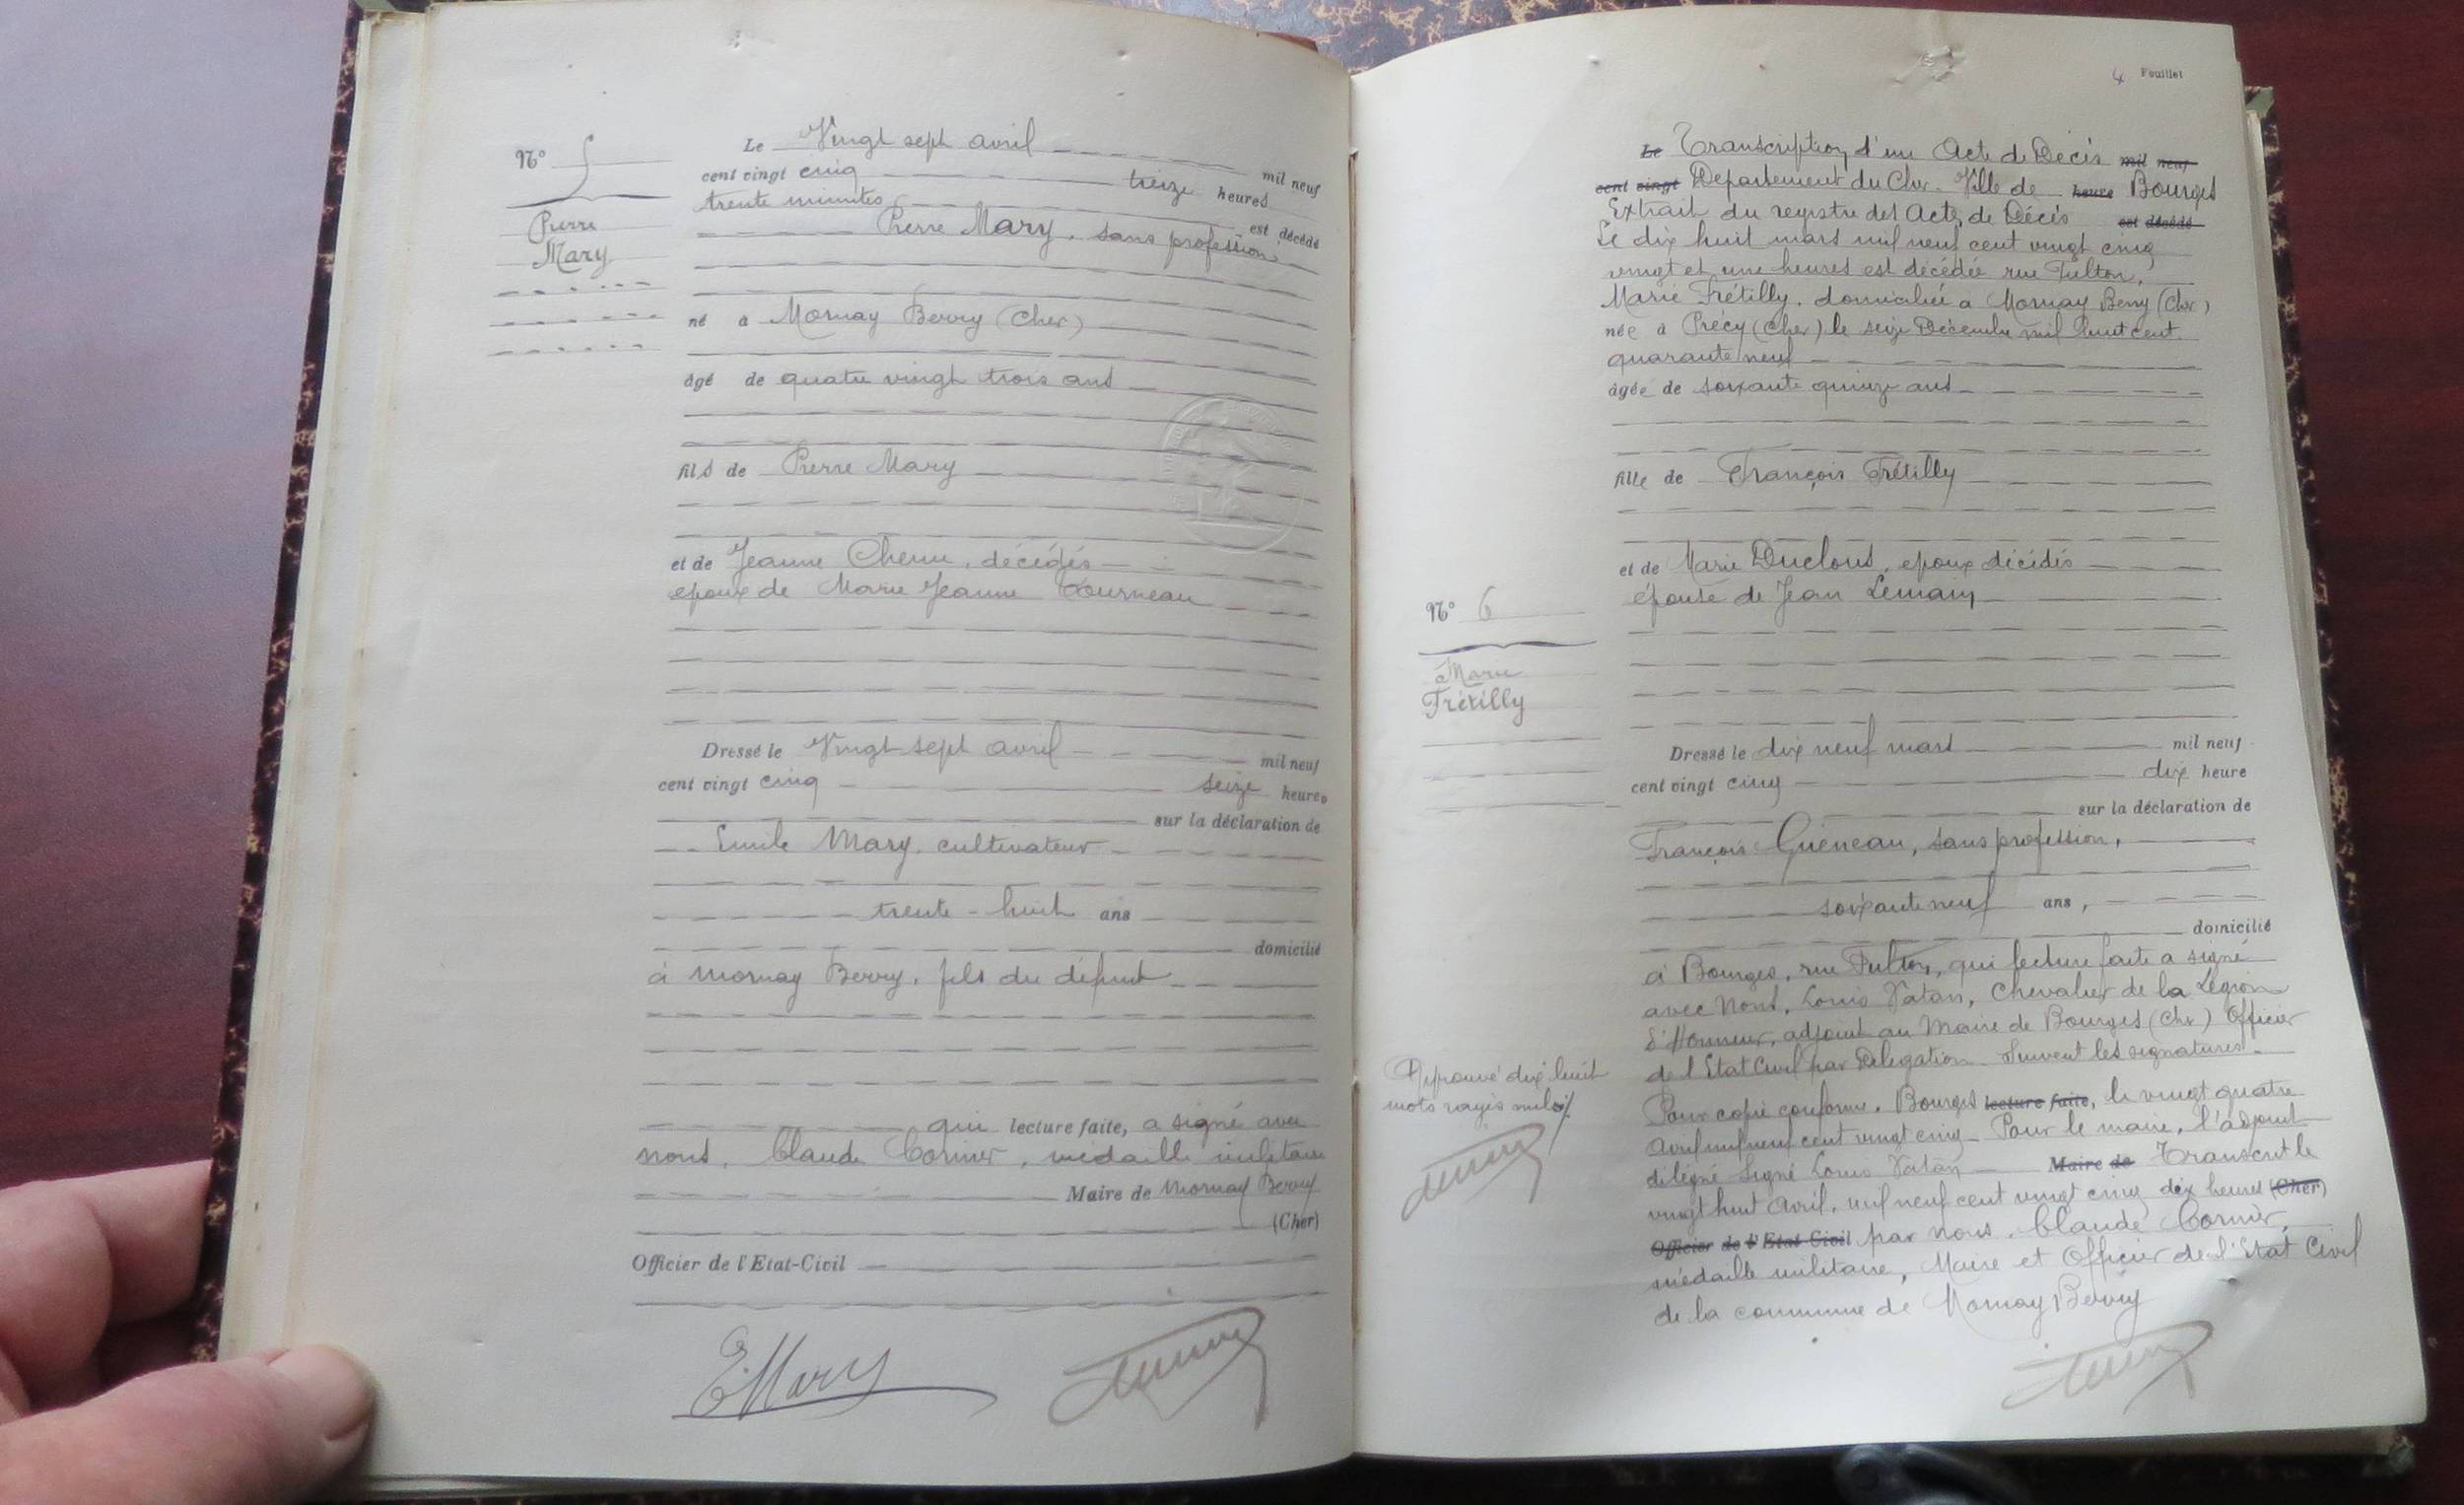 N° 5
Pierre
Mary
Le Vingt sept avril mil neuf
cent vingt cinq treize heures
trente minutes est décédé
Pierre Mary, sans profession
né à Mornay Berry (Cher)
âgé de quatre vingt trois ans
fils de Pierre Mary
et de Jeanne Chenu, décédés
époux de Marie Jeanne Tourneau
Dressé le Vingt sept avril mil neuf
cent vingt cinq seize heures
sur la déclaration de
Emile Mary, cultivateur
trente-huit ans
domicilié
à Mornay Berry, fils du défunt
qui lecture faite, a signé avec
nous, Claude Cornier, médaille militaire
Maire de Mornay Berry
(Cher)
Officier de l'Etat-Civil
E. Mary
4 Feuillet
Le Transcription d'un Acte de Décès mil neuf
cent vingt Département du Cher. Ville de heure Bourges
Extrait du registre des Actes de Décès est décédé
Le dix huit mars mil neuf cent vingt cinq
vingt et une heures est décédée rue Fulton,
Marie Frétilly, domiciliée à Mornay Berry (Cher)
née à Précy (Cher) le seize Décembre mil huit cent
quarante neuf
âgée de soixante quinze ans
fille de François Frétilly
et de Marie Duclous, époux décédés
épouse de Jean Lemain
N° 6
Marie
Frétilly
Dressé le dix neuf mars mil neuf
cent vingt cinq dix heure
sur la déclaration de
François Guéneau, sans profession,
soixante neuf ans,
domicilié
à Bourges, rue Fulton, qui lecture faite a signé
avec Nous, Louis Vatan, Chevalier de la Légion
d'Honneur, adjoint au Maire de Bourges (Cher) Officier
de l'Etat Civil par Délégation. Suivent les signatures.
Pour copie conforme. Bourges lecture faite, le vingt quatre
Avril mil neuf cent vingt cinq Pour le maire, l'adjoint
délégué Signé Louis Vatan Maire de Transcrit le
vingt huit Avril, mil neuf cent vingt cinq dix heures (Cher)
Officier de l'Etat Civil par nous, Claude Cornier,
médaille militaire, Maire et Officier de l'Etat Civil
de la commune de Mornay Berry
Approuvé dix huit
mots rayés nuls